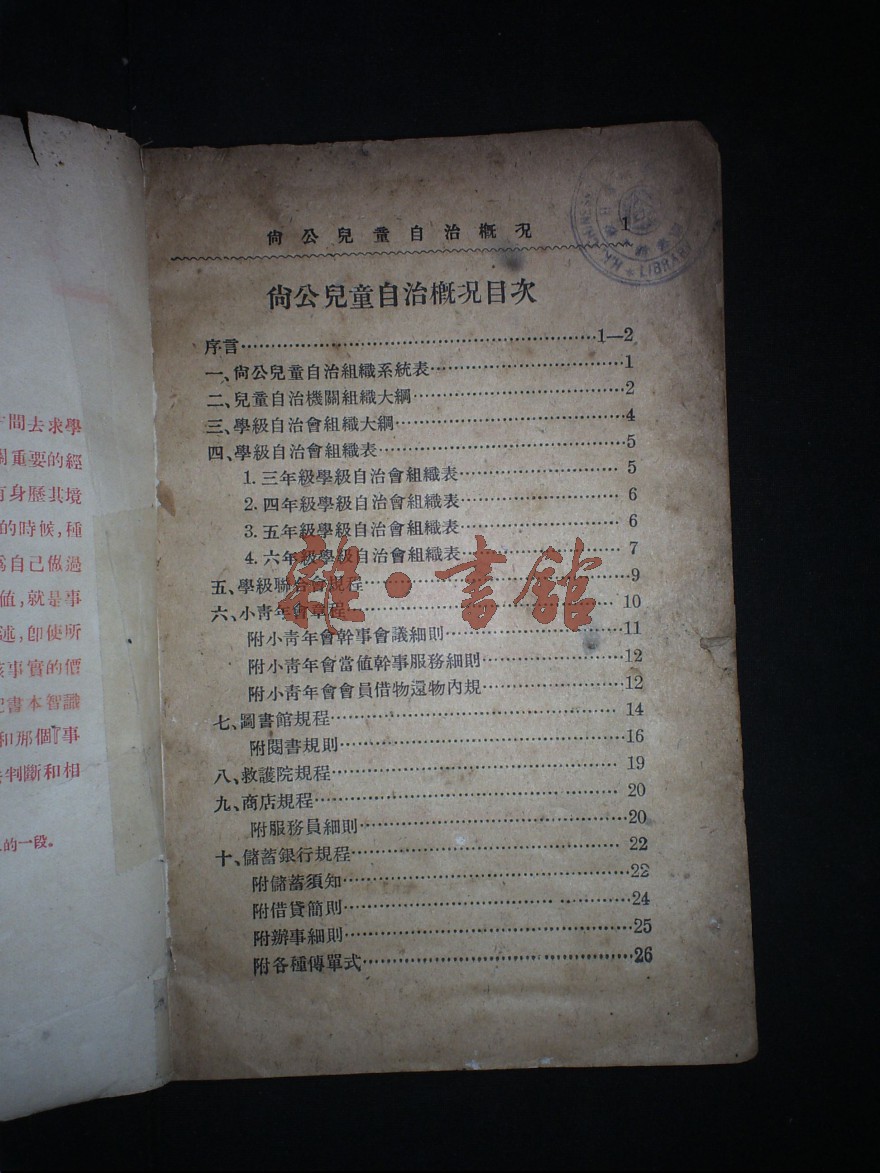 尙公兒童自治槪况 1
尙公兒童自治槪况目次
序言……1—2
一、尙公兒童自治組織系統表……1
二、兒童自治機關組織大綱……2
三、學級自治會組織大綱……4
四、學級自治會組織表……5
1.三年級學級自治會組織表……5
2.四年級學級自治會組織表……6
3.五年級學級自治會組織表……6
4.六年級學級自治會組織表……7
五、學級聯合會規程……9
六、小靑年會章程……10
附小靑年會幹事會議細則……11
附小靑年會當値幹事服務細則……12
附小靑年會會員借物還物內規……12
七、圖書館規程……14
附閱書規則……16
八、救護院規程……19
九、商店規程……20
附服務員細則……20
十、儲蓄銀行規程……22
附儲蓄須知……22
附借貸簡則……24
附辦事細則……25
附各種傳單式……26
雜·書館
間去求學
重要的經
身歷其境
的時候,種
自己做過
值,就是事
述,卽使所
事實的價
書本智識
和那個『事
判斷和相
的一段。